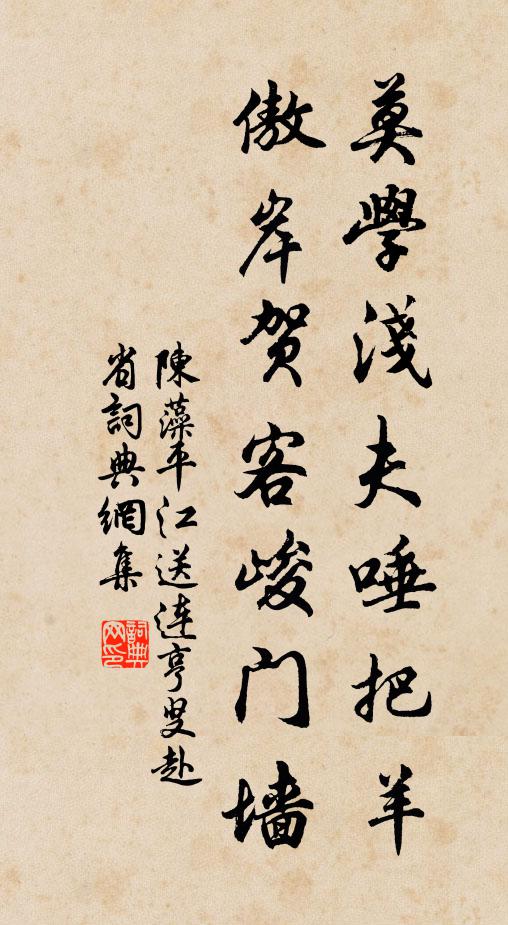 莫學淺夫唾把羊
傲岸賀客峻門墙
陳藻平江送连亨叟赴
省詞典網集
詞典網印